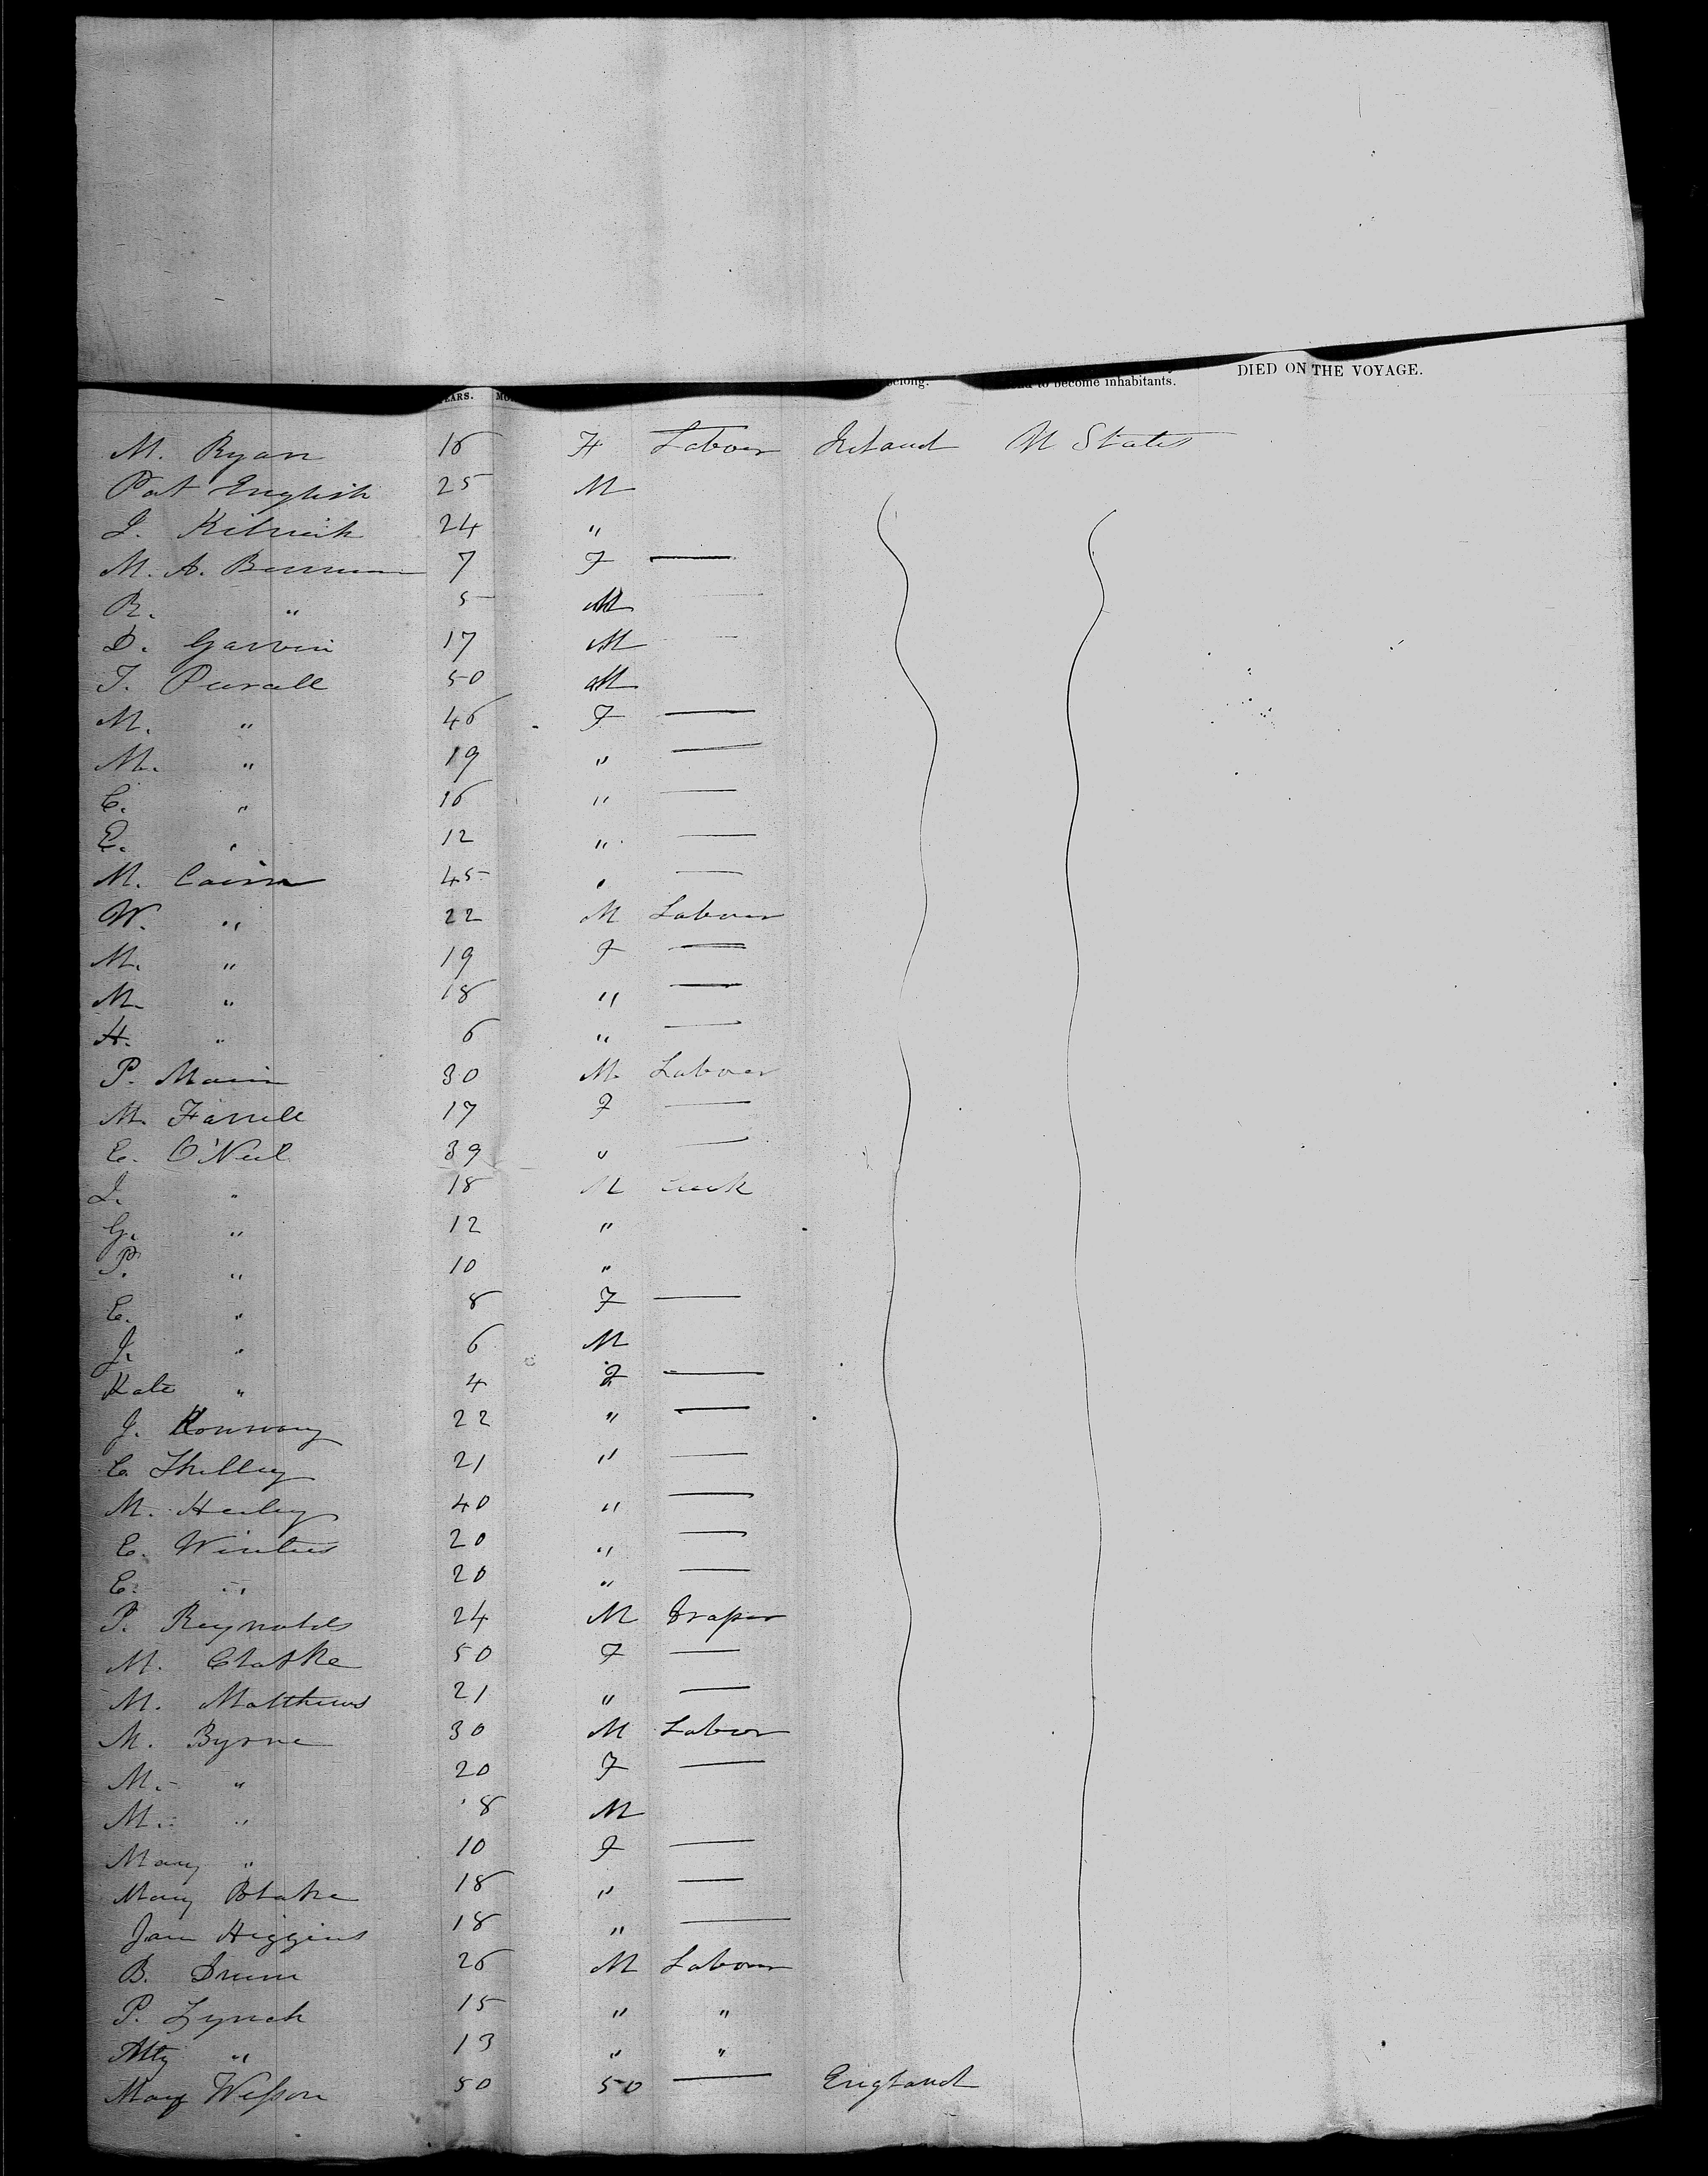 DIED ON THE VOYAGE.
belong. to become inhabitants.
M. Ryan 16 F Labour Ireland U States
Pat English 25 M
J. 24 "
M. A. 7 F —
R. " 5 M
D. Garvin 17 M
T. Purcell 50 M
M. " 46 F —
M. " 19 " —
C. " 16 " —
E. " 12 " —
M. 45 " —
W. " 22 M Labour
M. " 19 F —
M. " 18 " —
H. " 6 " —
P. 30 M Labour
M. Farrell 17 F —
E. O'Neil 39 " —
J. " 18 M
G. " 12 "
P. " 10 "
E. " 8 F —
J. " 6 M
Kate " 4 F —
J. Konway 22 " —
C. Shelley 21 " —
M. Healey 40 " —
E. Winters 20 " —
E. " 20 " —
P. Reynolds 24 M Draper
M. Clarke 50 F —
M. Matthews 21 " —
M. Byrne 30 M Labor
M. " 20 F —
M. " 8 M
Mary " 10 F —
Mary Blake 18 " —
Jane Higgins 18 " —
B. 26 M Labour
P. Lynch 15 " "
" 13 " "
Mary Wesson 50 50 — England